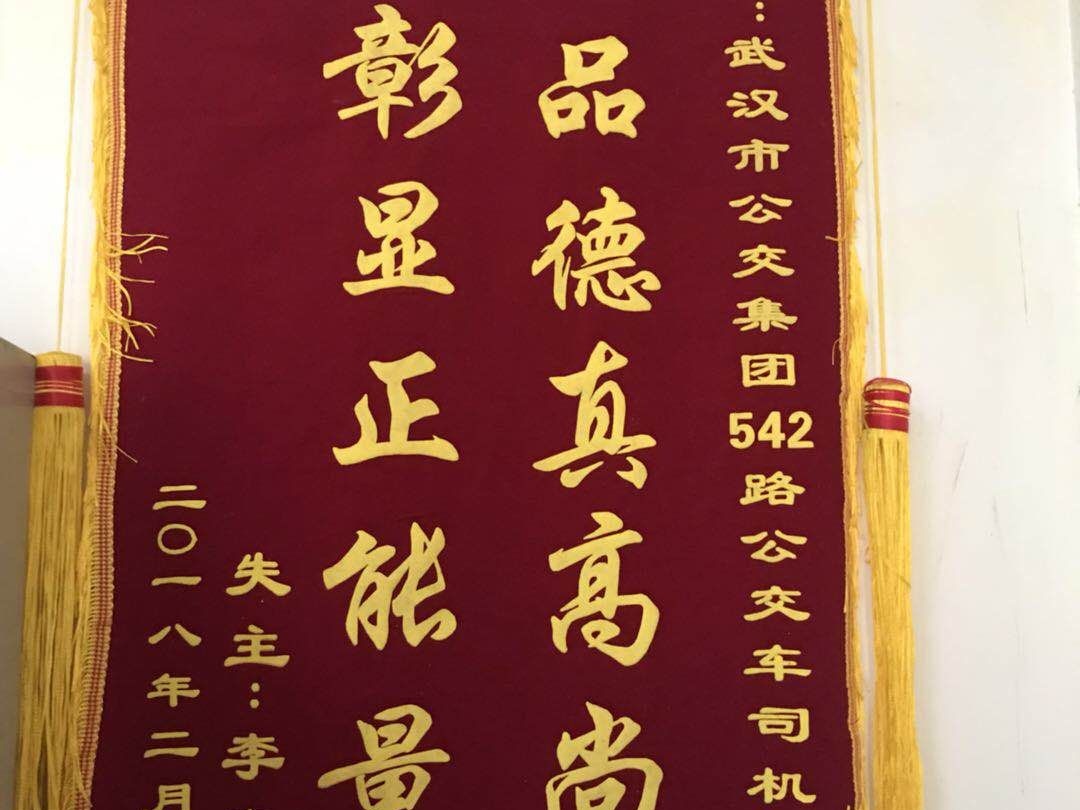 ：武汉市公交集团542路公交车司机
品德真高尚
彰显正能量
失主：李
二〇一八年二月